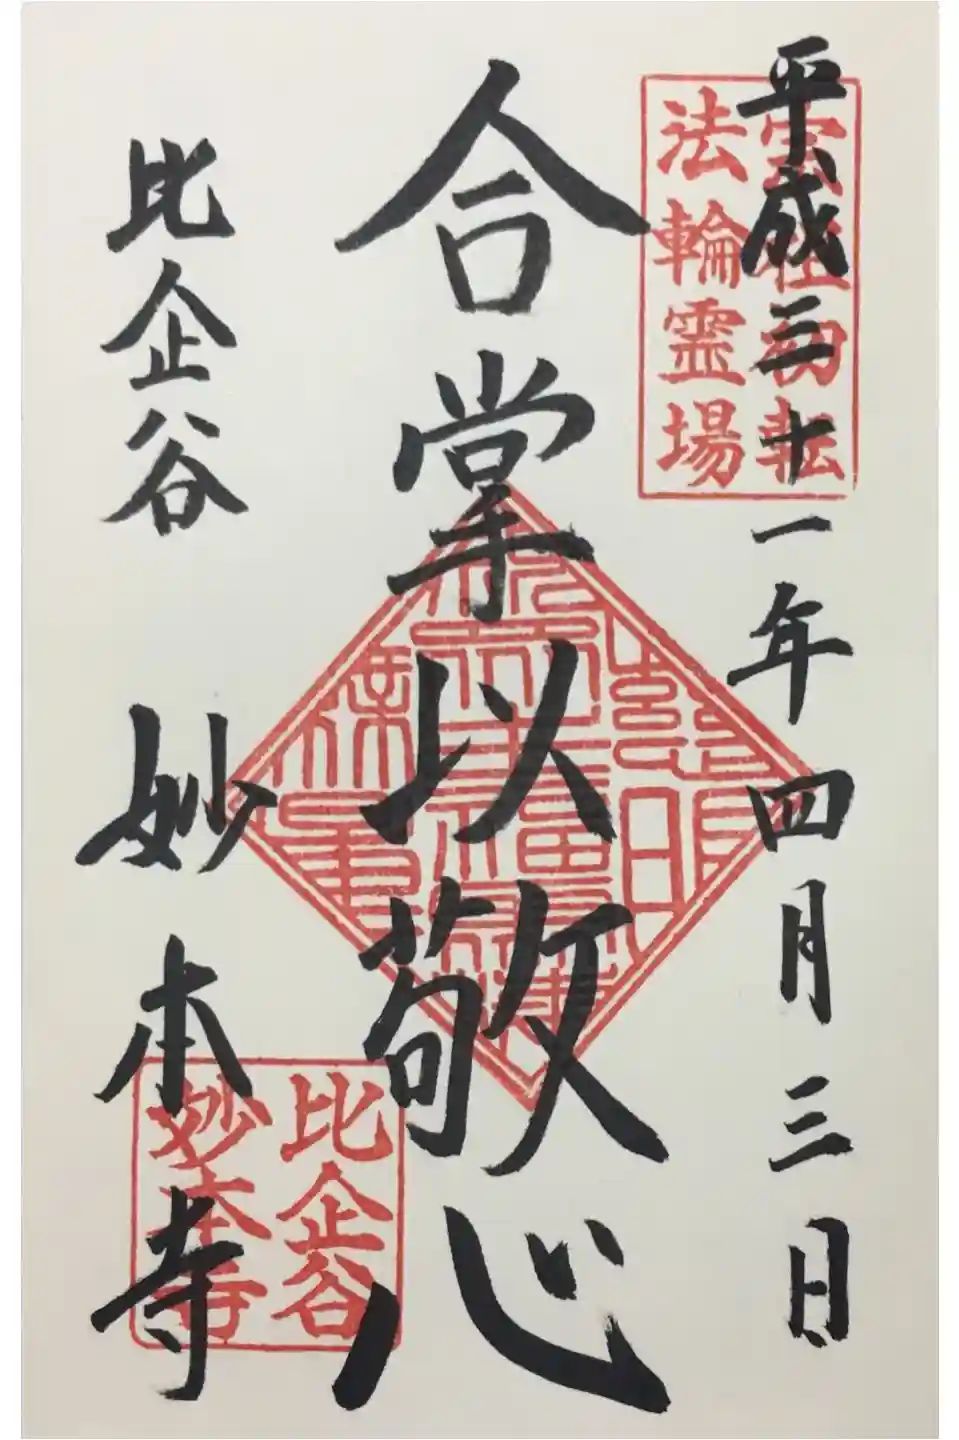 平成三十一年四月三日
法輪霊場
合掌以敬心
比企谷 妙本寺
比企谷
妙本寺